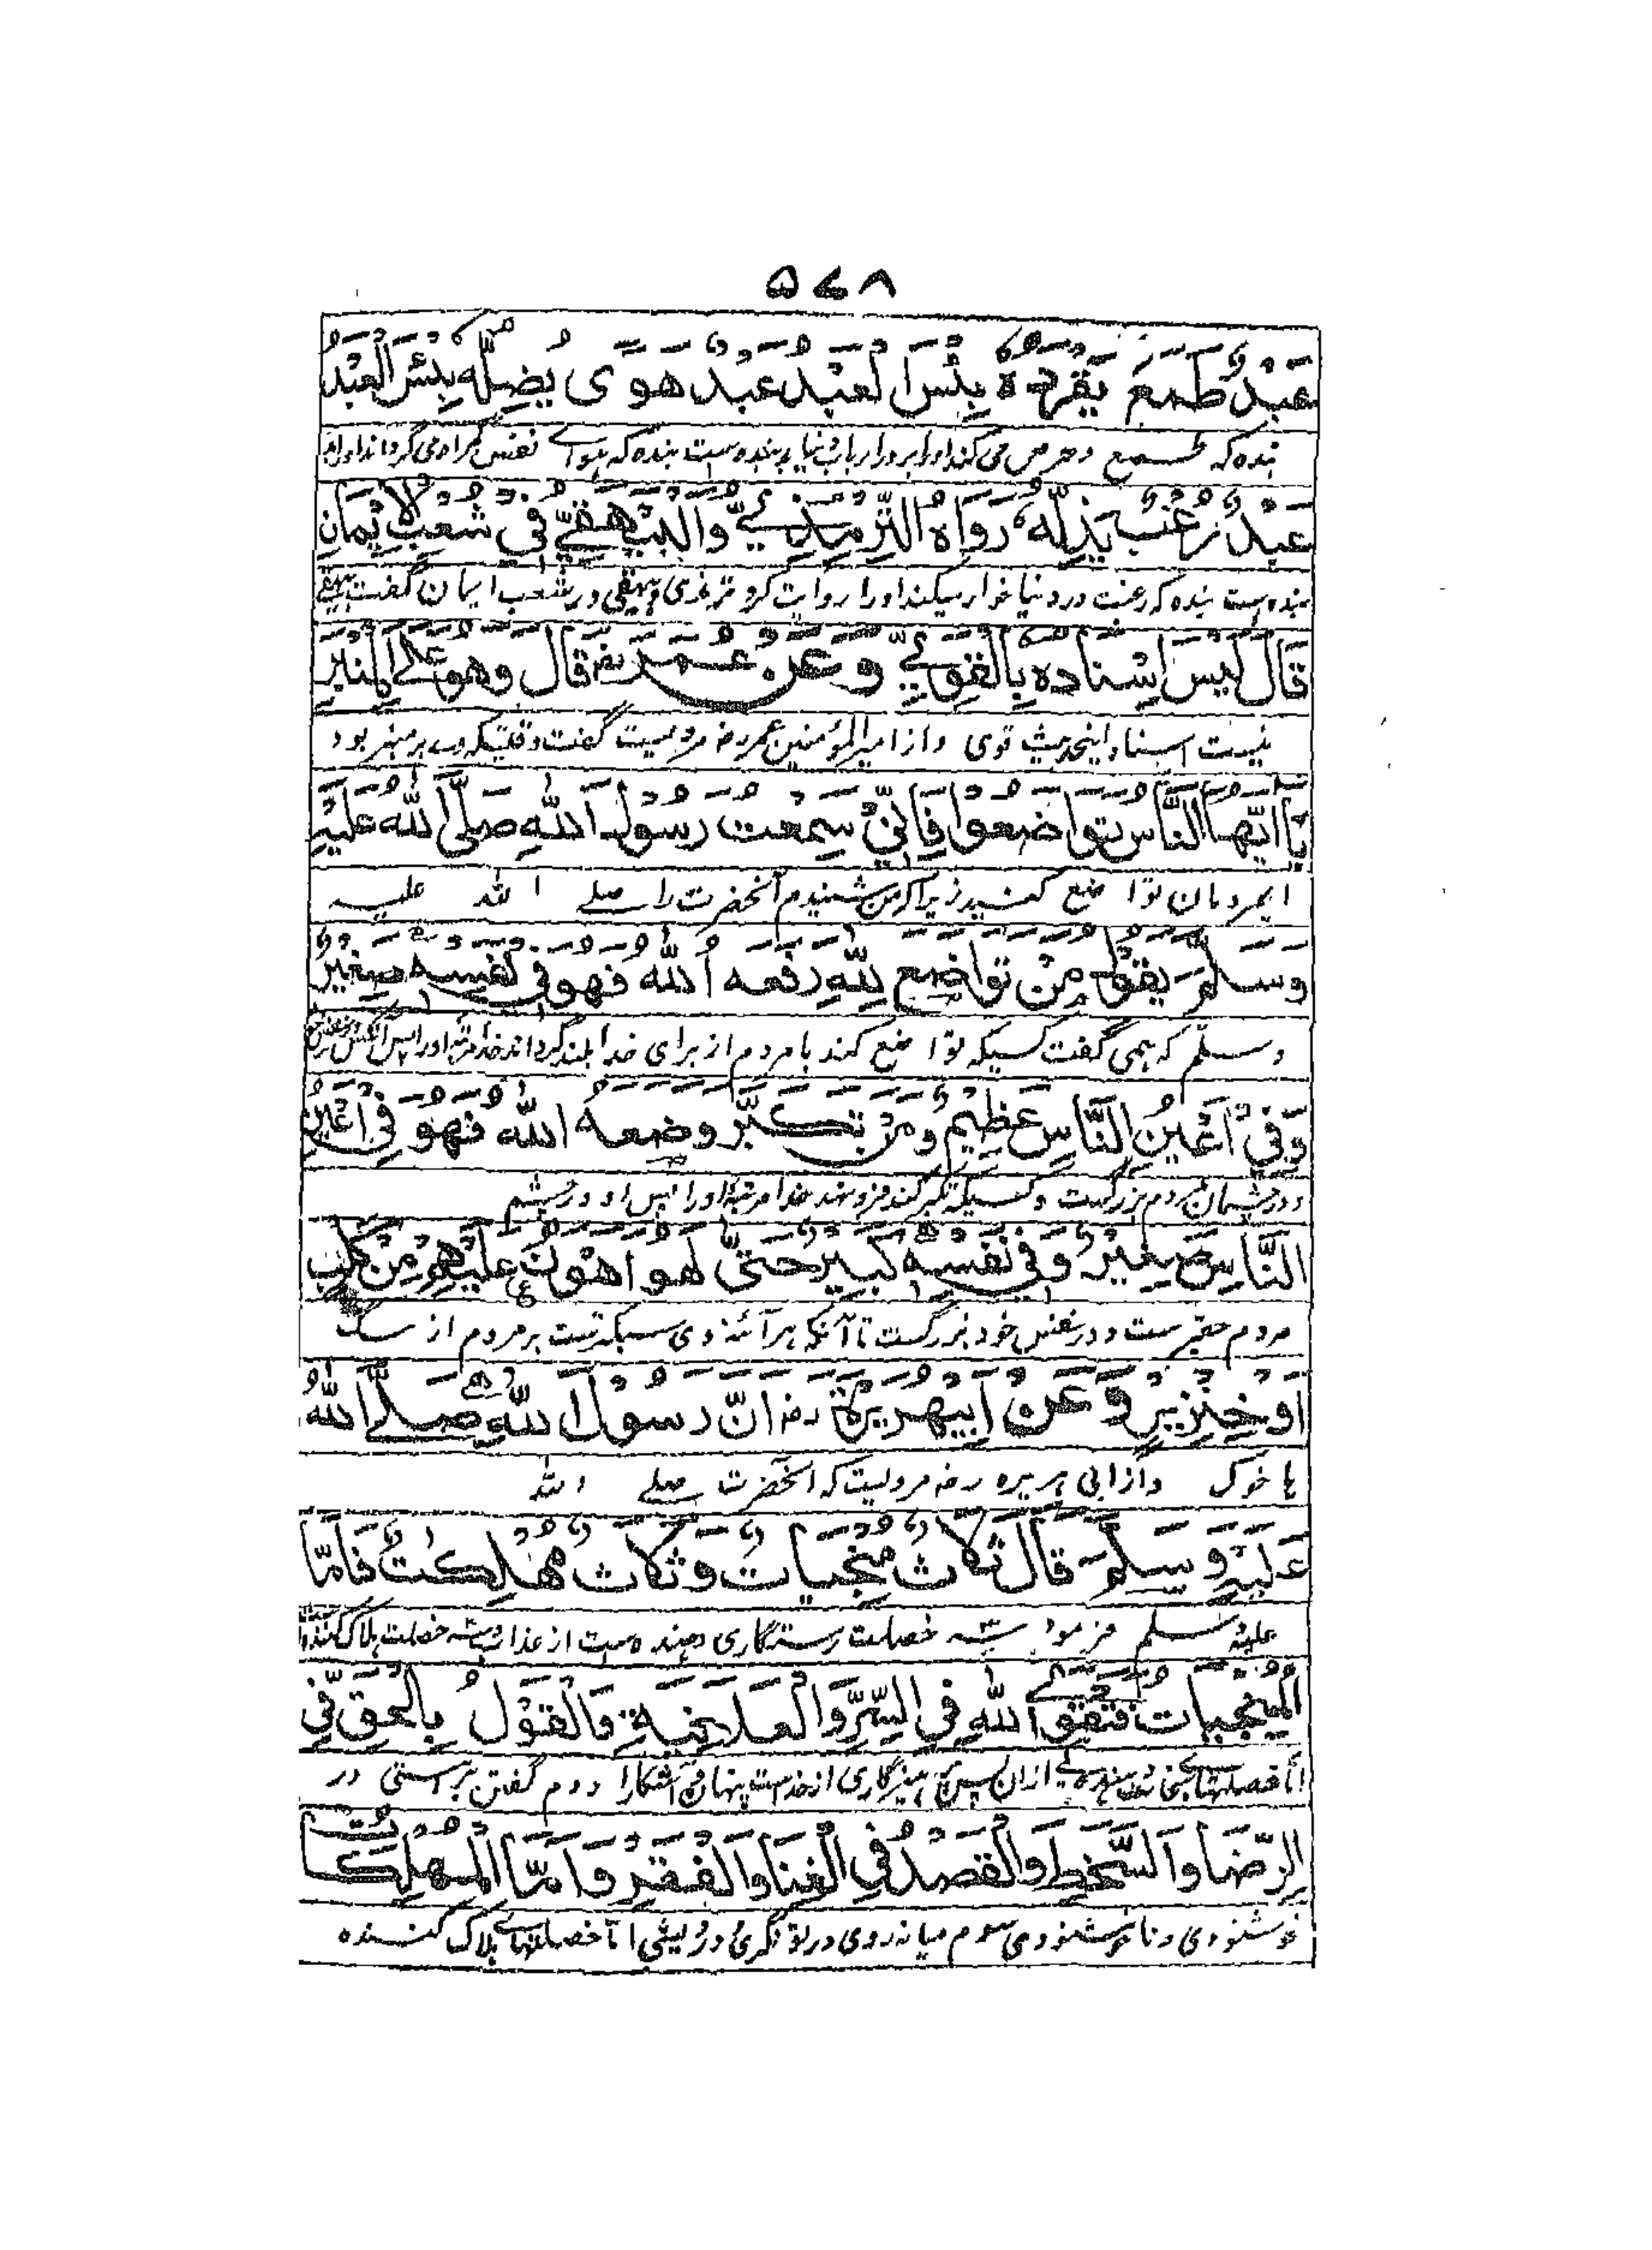 ۵۷۸
عَبْدٌ طَمَعٌ يَقُوْدُهٗ بِئْسَ الْعَبْدُ عَبْدٌ هَوًى يُضِلُّهٗ بِئْسَ الْعَبْدُ
بنده که طمع و حرص می کند او را بر در ارباب دنیا بد بنده است بنده که هوائے نفس گمراه می گرداند او را
عَبْدٌ رُغَبٌ يُذِلُّهٗ رَوَاهُ التِّرْمِذِيُّ وَالْبَيْهَقِيُّ فِيْ شُعَبِ الْاِيْمَانِ
بنده است بنده که رغبت در دنیا خوار میکند او را روایت کرد ترمذی و بیهقی در شعب ایمان گفت بیهقی
قَالَ لَيْسَ اِسْنَادُهٗ بِالْقَوِيِّ وَعَنْ عُمَرَ رض قَالَ وَهُوَ عَلَى الْمِنْبَرِ
نیست اسناد اینحدیث قوی و از امیر المؤمنین عمر رض مرویست گفت وقتیکه وے بر منبر بود
يٰاَ اَيُّهَا النَّاسُ تَوَاضَعُوْا فَاِنِّيْ سَمِعْتُ رَسُوْلَ اللهِ صَلَّى اللهُ عَلَيْهِ
ایمردمان تواضع کنید زیرا که من شنیدم آنحضرت را صلے الله علیه
وَسَلَّمَ يَقُوْلُ مَنْ تَوَاضَعَ لِلّٰهِ رَفَعَهُ اللهُ فَهُوَ فِيْ نَفْسِهٖ صَغِيْرٌ
وسلم که همی گفت کسیکه تواضع کند با مردم از برای خدا بلند گرداند خدا مرتبه او را پس آنکس در نفس
وَّفِيْ اَعْيُنِ النَّاسِ عَظِيْمٌ وَمَنْ تَكَبَّرَ وَضَعَهُ اللهُ فَهُوَ فِيْ اَعْيُنِ
و در چشمان مردم بزرگست و کسیکه تکبر کند فرو نهد خدا مرتبه او را پس او در چشم
النَّاسِ صَغِيْرٌ وَفِيْ نَفْسِهٖ كَبِيْرٌ حَتّٰى لَهُوَ اَهْوَنُ عَلَيْهِمْ مِنْ كَلْبٍ
مردم حقیرست و در نفس خود بزرگست تا آنکه هر آئنه وی سبکترست بر مردم از سگ
اَوْ خِنْزِيْرٍ وَعَنْ اَبِيْهُرَيْرَةَ رض اَنَّ رَسُوْلَ اللهِ صَلَّى اللهُ
یا خوک و از ابی هریره رض مرویست که آنحضرت صلے الله
عَلَيْهِ وَسَلَّمَ قَالَ ثَلَاثٌ مُنْجِيَاتٌ وَثَلَاثٌ مُهْلِكٰتٌ فَاَمَّا
علیه وسلم فرمود سه خصلت رستگاری دهنده است از عذاب و سه خصلت هلاک کننده
الْمُنْجِيَاتُ فَتَقْوَى اللهِ فِي السِّرِّ وَالْعَلَانِيَةِ وَالْقَوْلُ بِالْحَقِّ فِي
اما خصلتهای ازان پرهیزگاری از خداست پنهان و آشکارا دوم گفتن براستی در
الرِّضَا وَالسَّخَطِ وَالْقَصْدُ فِي الْغِنَا وَالْفَقْرِ وَاَمَّا الْمُهْلِكٰتُ
خوشنودی و ناخوشنودی سوم میانه روی در توانگری و درویشی اما خصلتهائے هلاک کننده